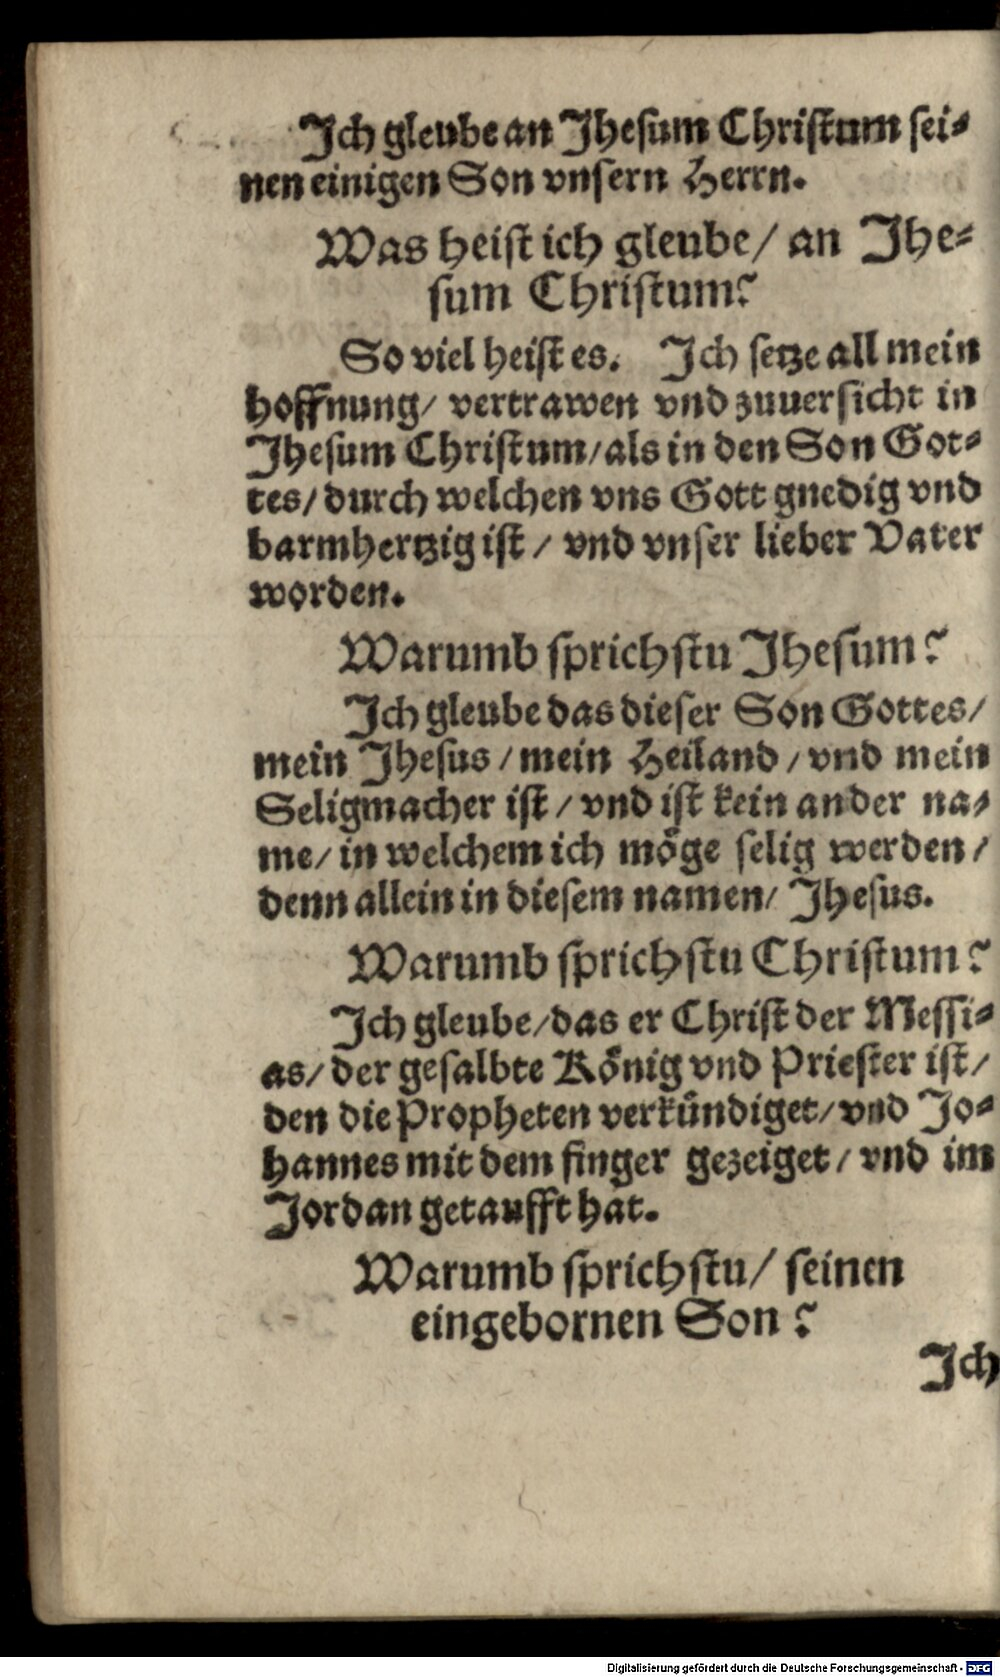 Ich gleube an Jhesum Christum sei⸗
nen einigen Son vnsern Herrn.
Was heist ich gleube/ an Jhe⸗
sum Christum?
So viel heist es. Ich setze all mein
hoffnung/ vertrawen vnd zuuersicht in
Jhesum Christum/ als in den Son Got⸗
tes/ durch welchen vns Gott gnedig vnd
barmhertzig ist/ vnd vnser lieber Vater
worden.
Warumb sprichstu Jhesum?
Ich gleube das dieser Son Gottes/
mein Jhesus/ mein Heiland/ vnd mein
Seligmacher ist/ vnd ist kein ander na⸗
me/ in welchem ich möge selig werden/
denn allein in diesem namen/ Jhesus.
Warumb sprichstu Christum?
Ich gleube/ das er Christ der Messi⸗
as/ der gesalbte König vnd Priester ist/
den die Propheten verkündiget/ vnd Jo⸗
hannes mit dem finger gezeiget/ vnd im
Jordan getaufft hat.
Warumb sprichstu/ seinen
eingebornen Son?
Ich
Digitalisierung gefördert durch die Deutsche Forschungsgemeinschaft - DFG